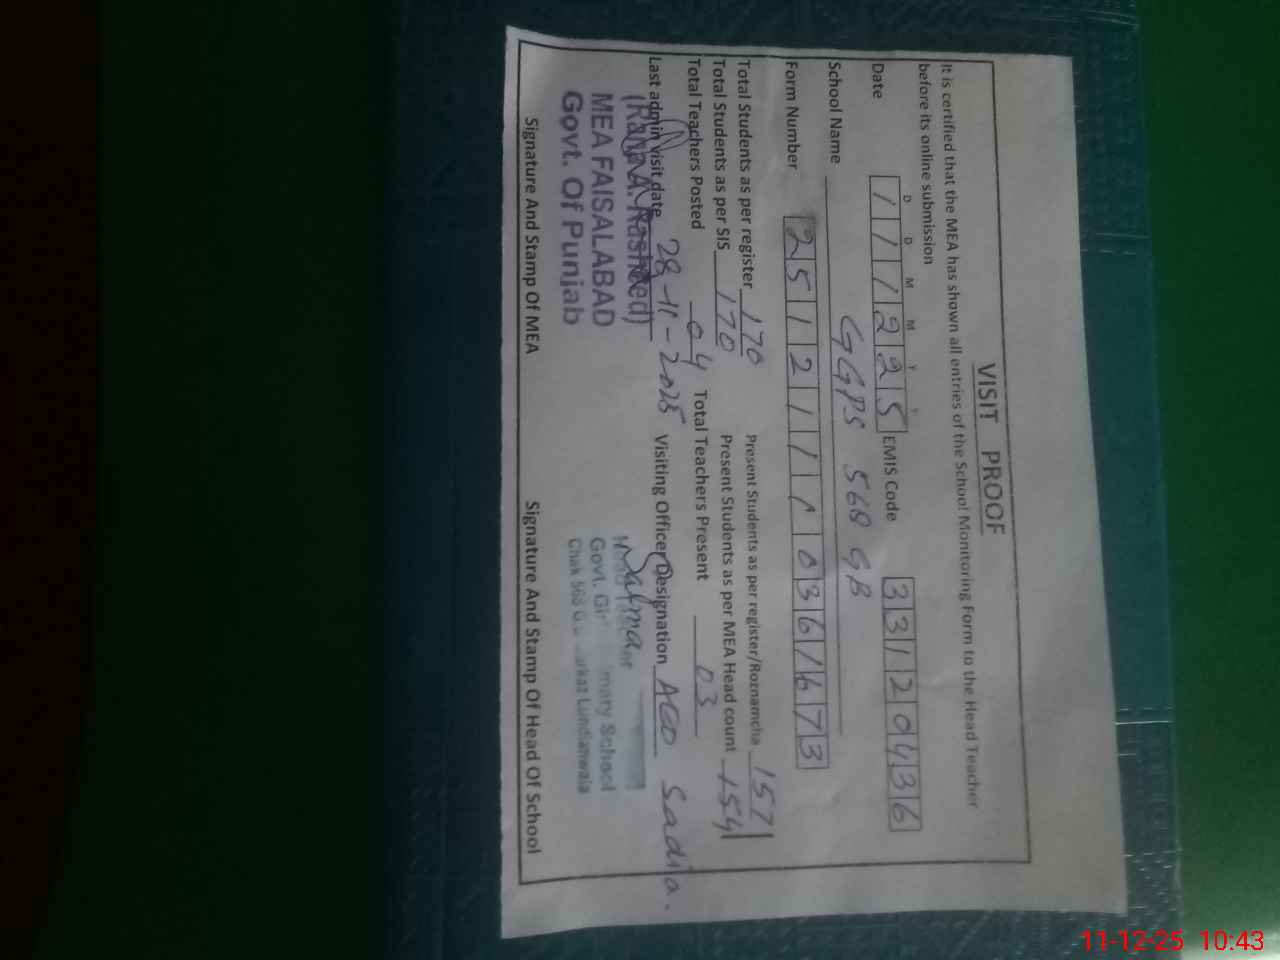 VISIT PROOF
It is certified that the MEA has shown all entries of the School Monitoring Form to the Head Teacher
before its online submission
D D M M Y Y
Date 1 1 1 2 2 5 EMIS Code 3 3 1 2 0 4 3 6
School Name GGPS 568 GB
Form Number 2 5 1 2 1 1 1 0 3 6 1 6 7 3
Total Students as per register 170 Present Students as per register/Roznamcha 157
Total Students as per SIS 170 Present Students as per MEA Head count 154
Total Teachers Posted 04 Total Teachers Present 03
Last admin visit date 28-11-2025 Visiting Officer Designation AEO Sadia.
(Rana A. Rasheed)
MEA FAISALABAD
Govt. Of Punjab
Govt. Primary School
Chak 568 G
Signature And Stamp Of MEA Signature And Stamp Of Head Of School
11-12-25 10:43